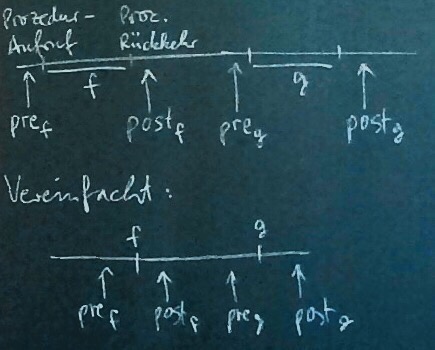 Prozedur- Proz.
Aufruf Rückkehr
f g
pre_f post_f pre_g post_g
Vereinfacht:
f g
pre_f post_f pre_g post_g